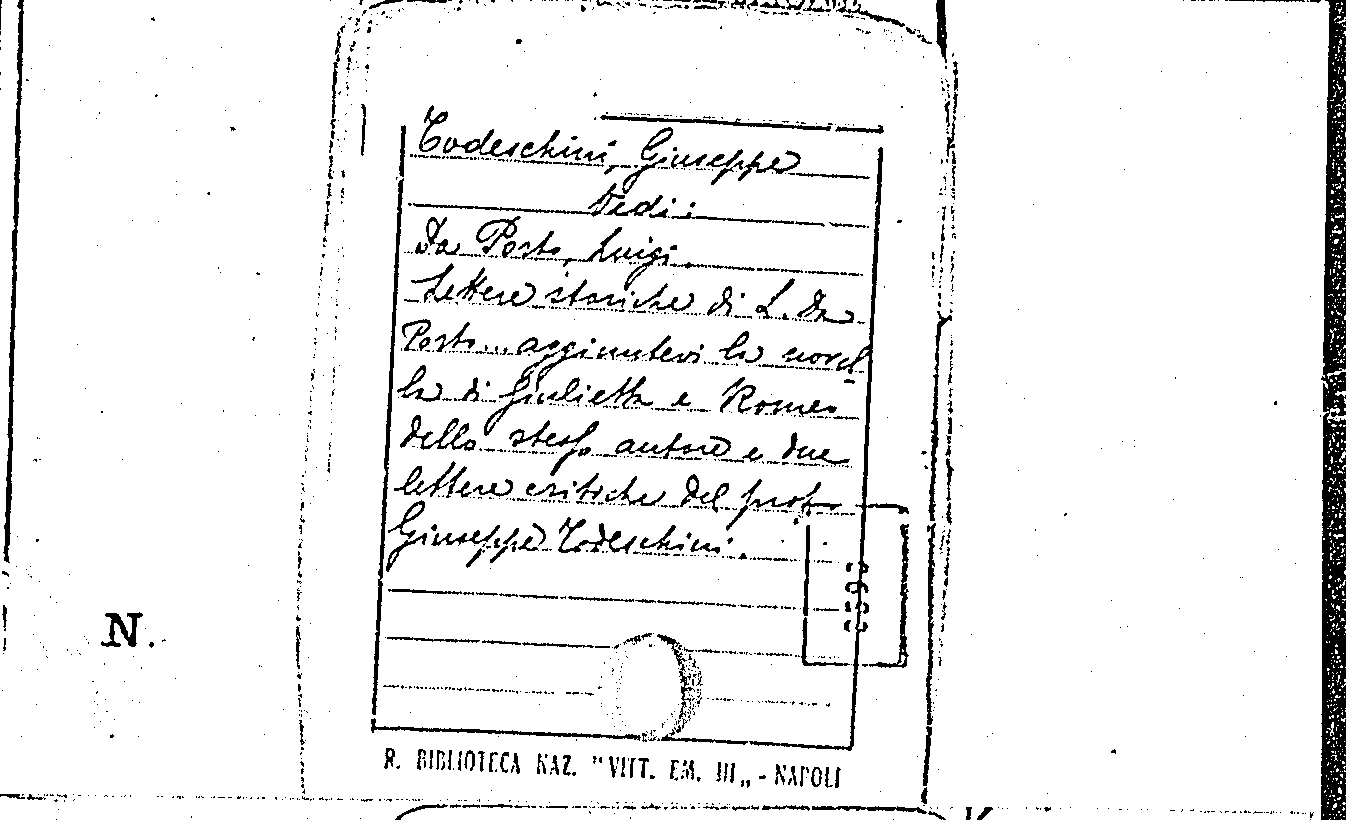 Todeschini, Giuseppe
Vedi:
Da Porto, Luigi.
Lettere storiche di L. Da
Porto... aggiuntevi la novel
la di Giulietta e Romeo
dello stesso autore e due
lettere critiche del prof.
Giuseppe Todeschini.
N.
R. BIBLIOTECA NAZ. "VITT. EM. III„ - NAPOLI